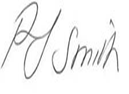 PJ Smith